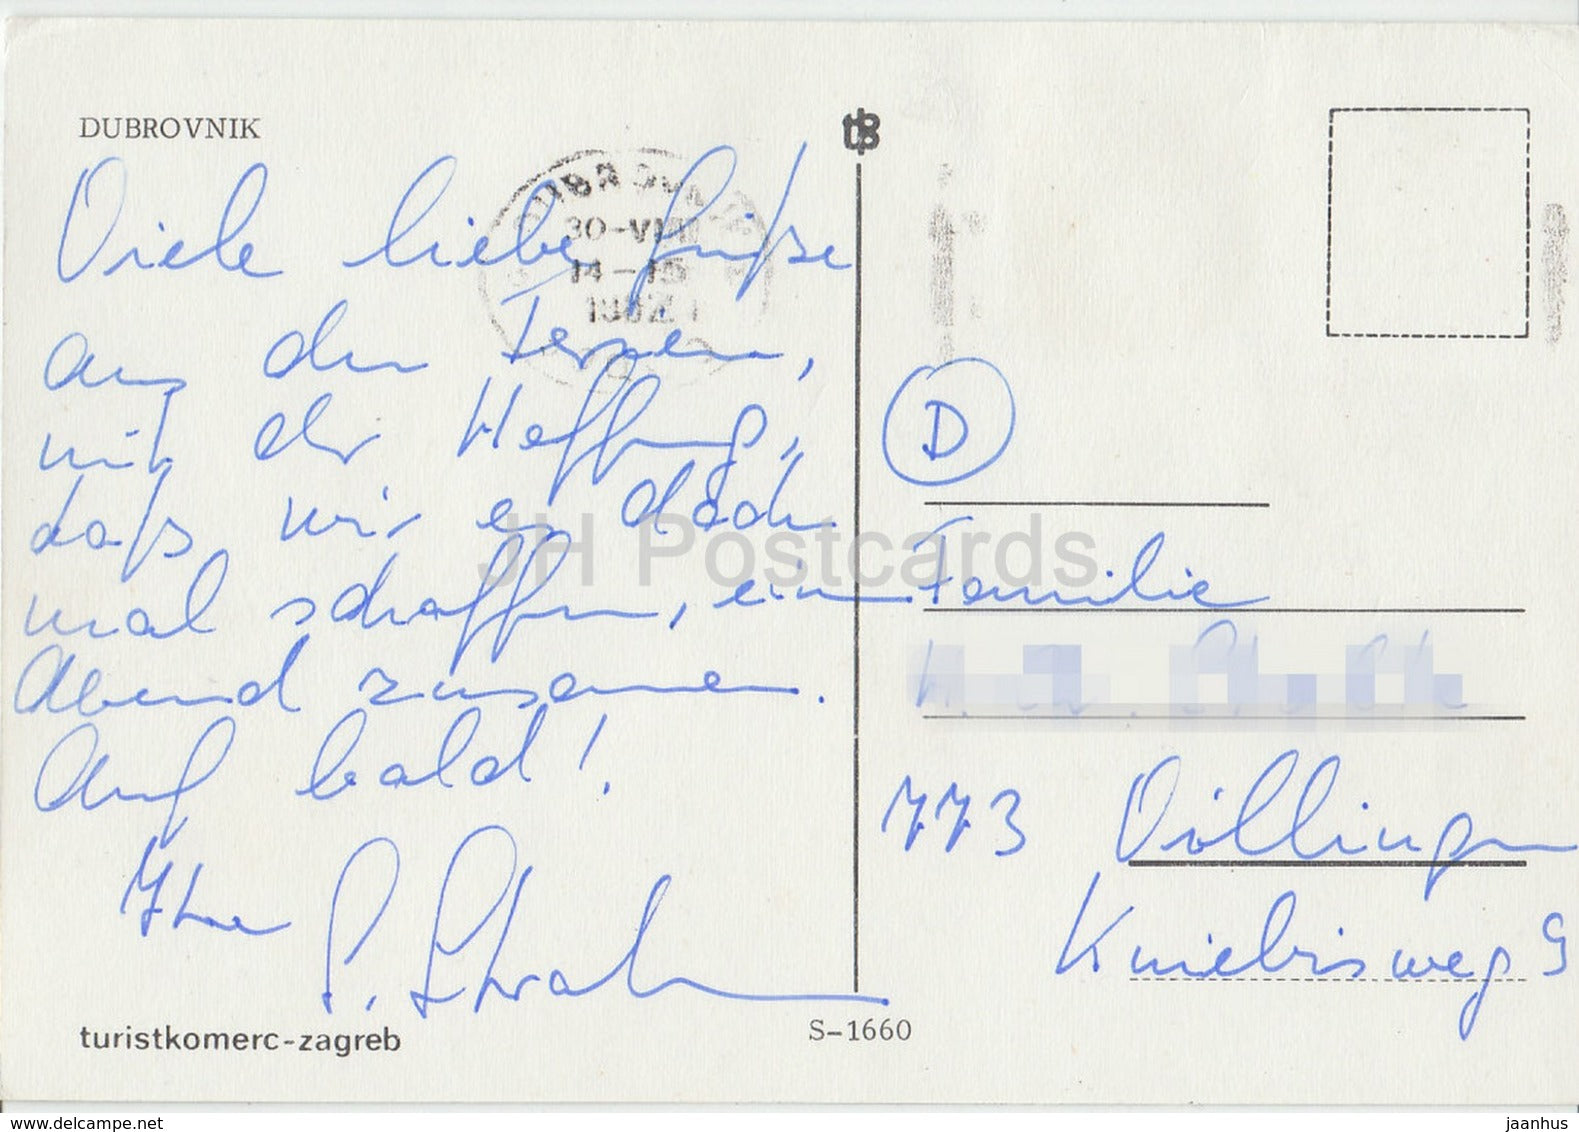 DUBROVNIK
Viele liebe Grüße
aus den Ferien,
mit der Hoffnung,
daß wir es doch
mal schaffen, einen
Abend zusammen.
Auf bald!
Ihre
turistkomerc-zagreb
S-1660
30-VIII
14-15
D
Familie
773 Villingen
Kniebisweg 9
JH Postcards
www.delcampe.net
jaanhus